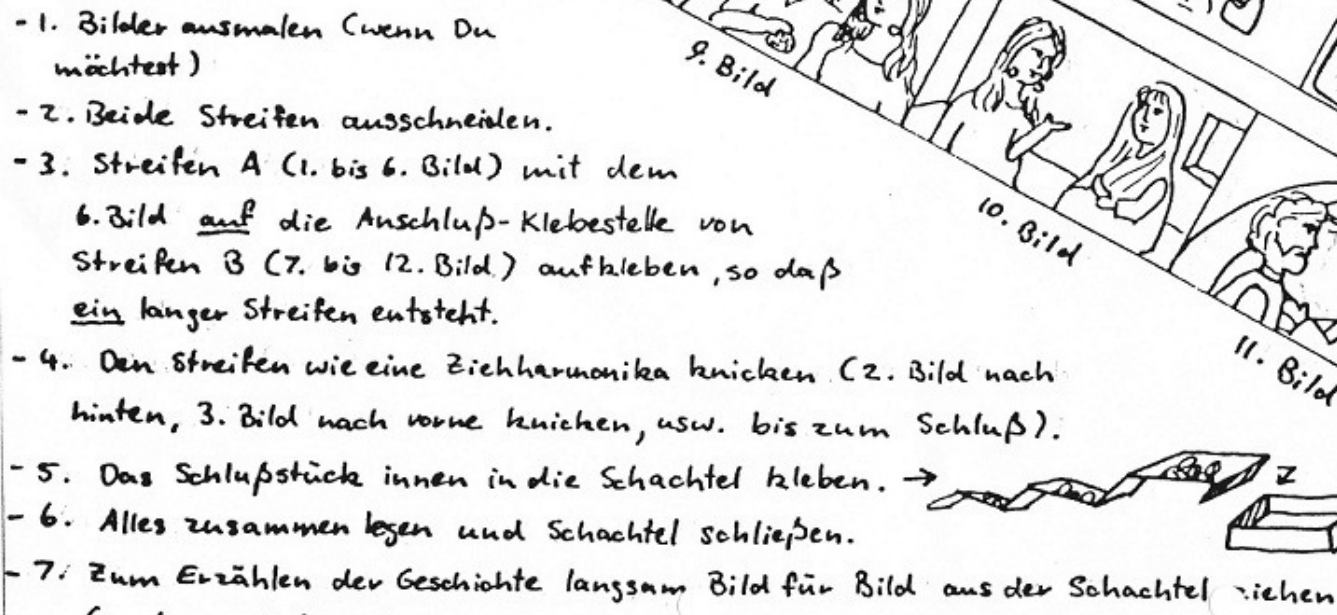 - 1. Bilder ausmalen (wenn Du
möchtest)
- 2. Beide Streifen ausschneiden.
- 3. Streifen A (1. bis 6. Bild) mit dem
6. Bild auf die Anschluß-Klebestelle von
Streifen B (7. bis 12. Bild) aufkleben, so daß
ein langer Streifen entsteht.
- 4. Den Streifen wie eine Ziehharmonika knicken (2. Bild nach
hinten, 3. Bild nach vorne knicken, usw. bis zum Schluß).
- 5. Das Schlußstück innen in die Schachtel kleben. →
- 6. Alles zusammen legen und Schachtel schließen.
- 7. Zum Erzählen der Geschichte langsam Bild für Bild aus der Schachtel ziehen
9. Bild
10. Bild
11. Bild